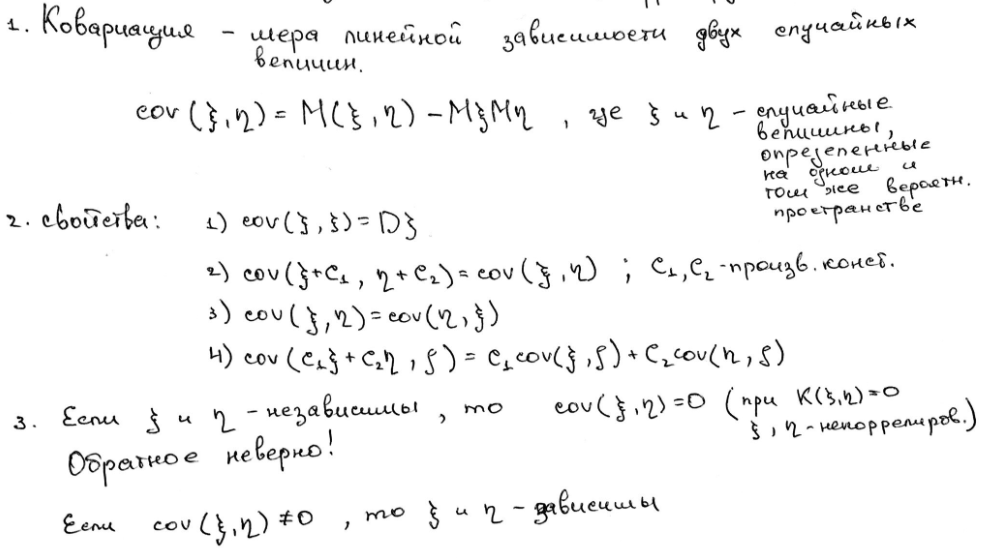 1. Ковариация – мера линейной зависимости двух случайных
величин.
cov(ξ,η) = M(ξ,η) – MξMη , где ξ и η – случайные
величины,
определенные
на одном и
том же вероятн.
пространстве
2. свойства: 1) cov(ξ,ξ) = Dξ
2) cov(ξ+C₁, η+C₂) = cov(ξ,η) ; C₁,C₂ - произв. конст.
3) cov(ξ,η) = cov(η,ξ)
4) cov(C₁ξ + C₂η, ρ) = C₁cov(ξ,ρ) + C₂cov(η,ρ)
3. Если ξ и η – независимы, то cov(ξ,η) = 0 (при K(ξ,η)=0
ξ, η - некоррелиров.)
Обратное неверно!
Если cov(ξ,η) ≠ 0, то ξ и η – зависимы